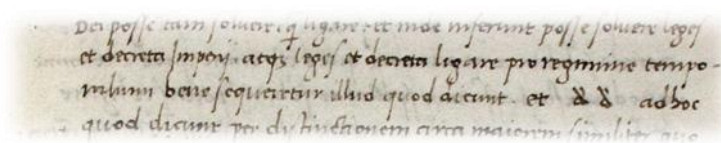 Dei posse tam soluere. q̃ ligare. et inde inferunt posse soluere leges
et decreta Imperij. atq; leges et decreta ligare pro regimine tempo-
ralium bene sequeretur illud quod dicunt. et ad hoc
quod dicunt per distinctionem circa maiorem similiter